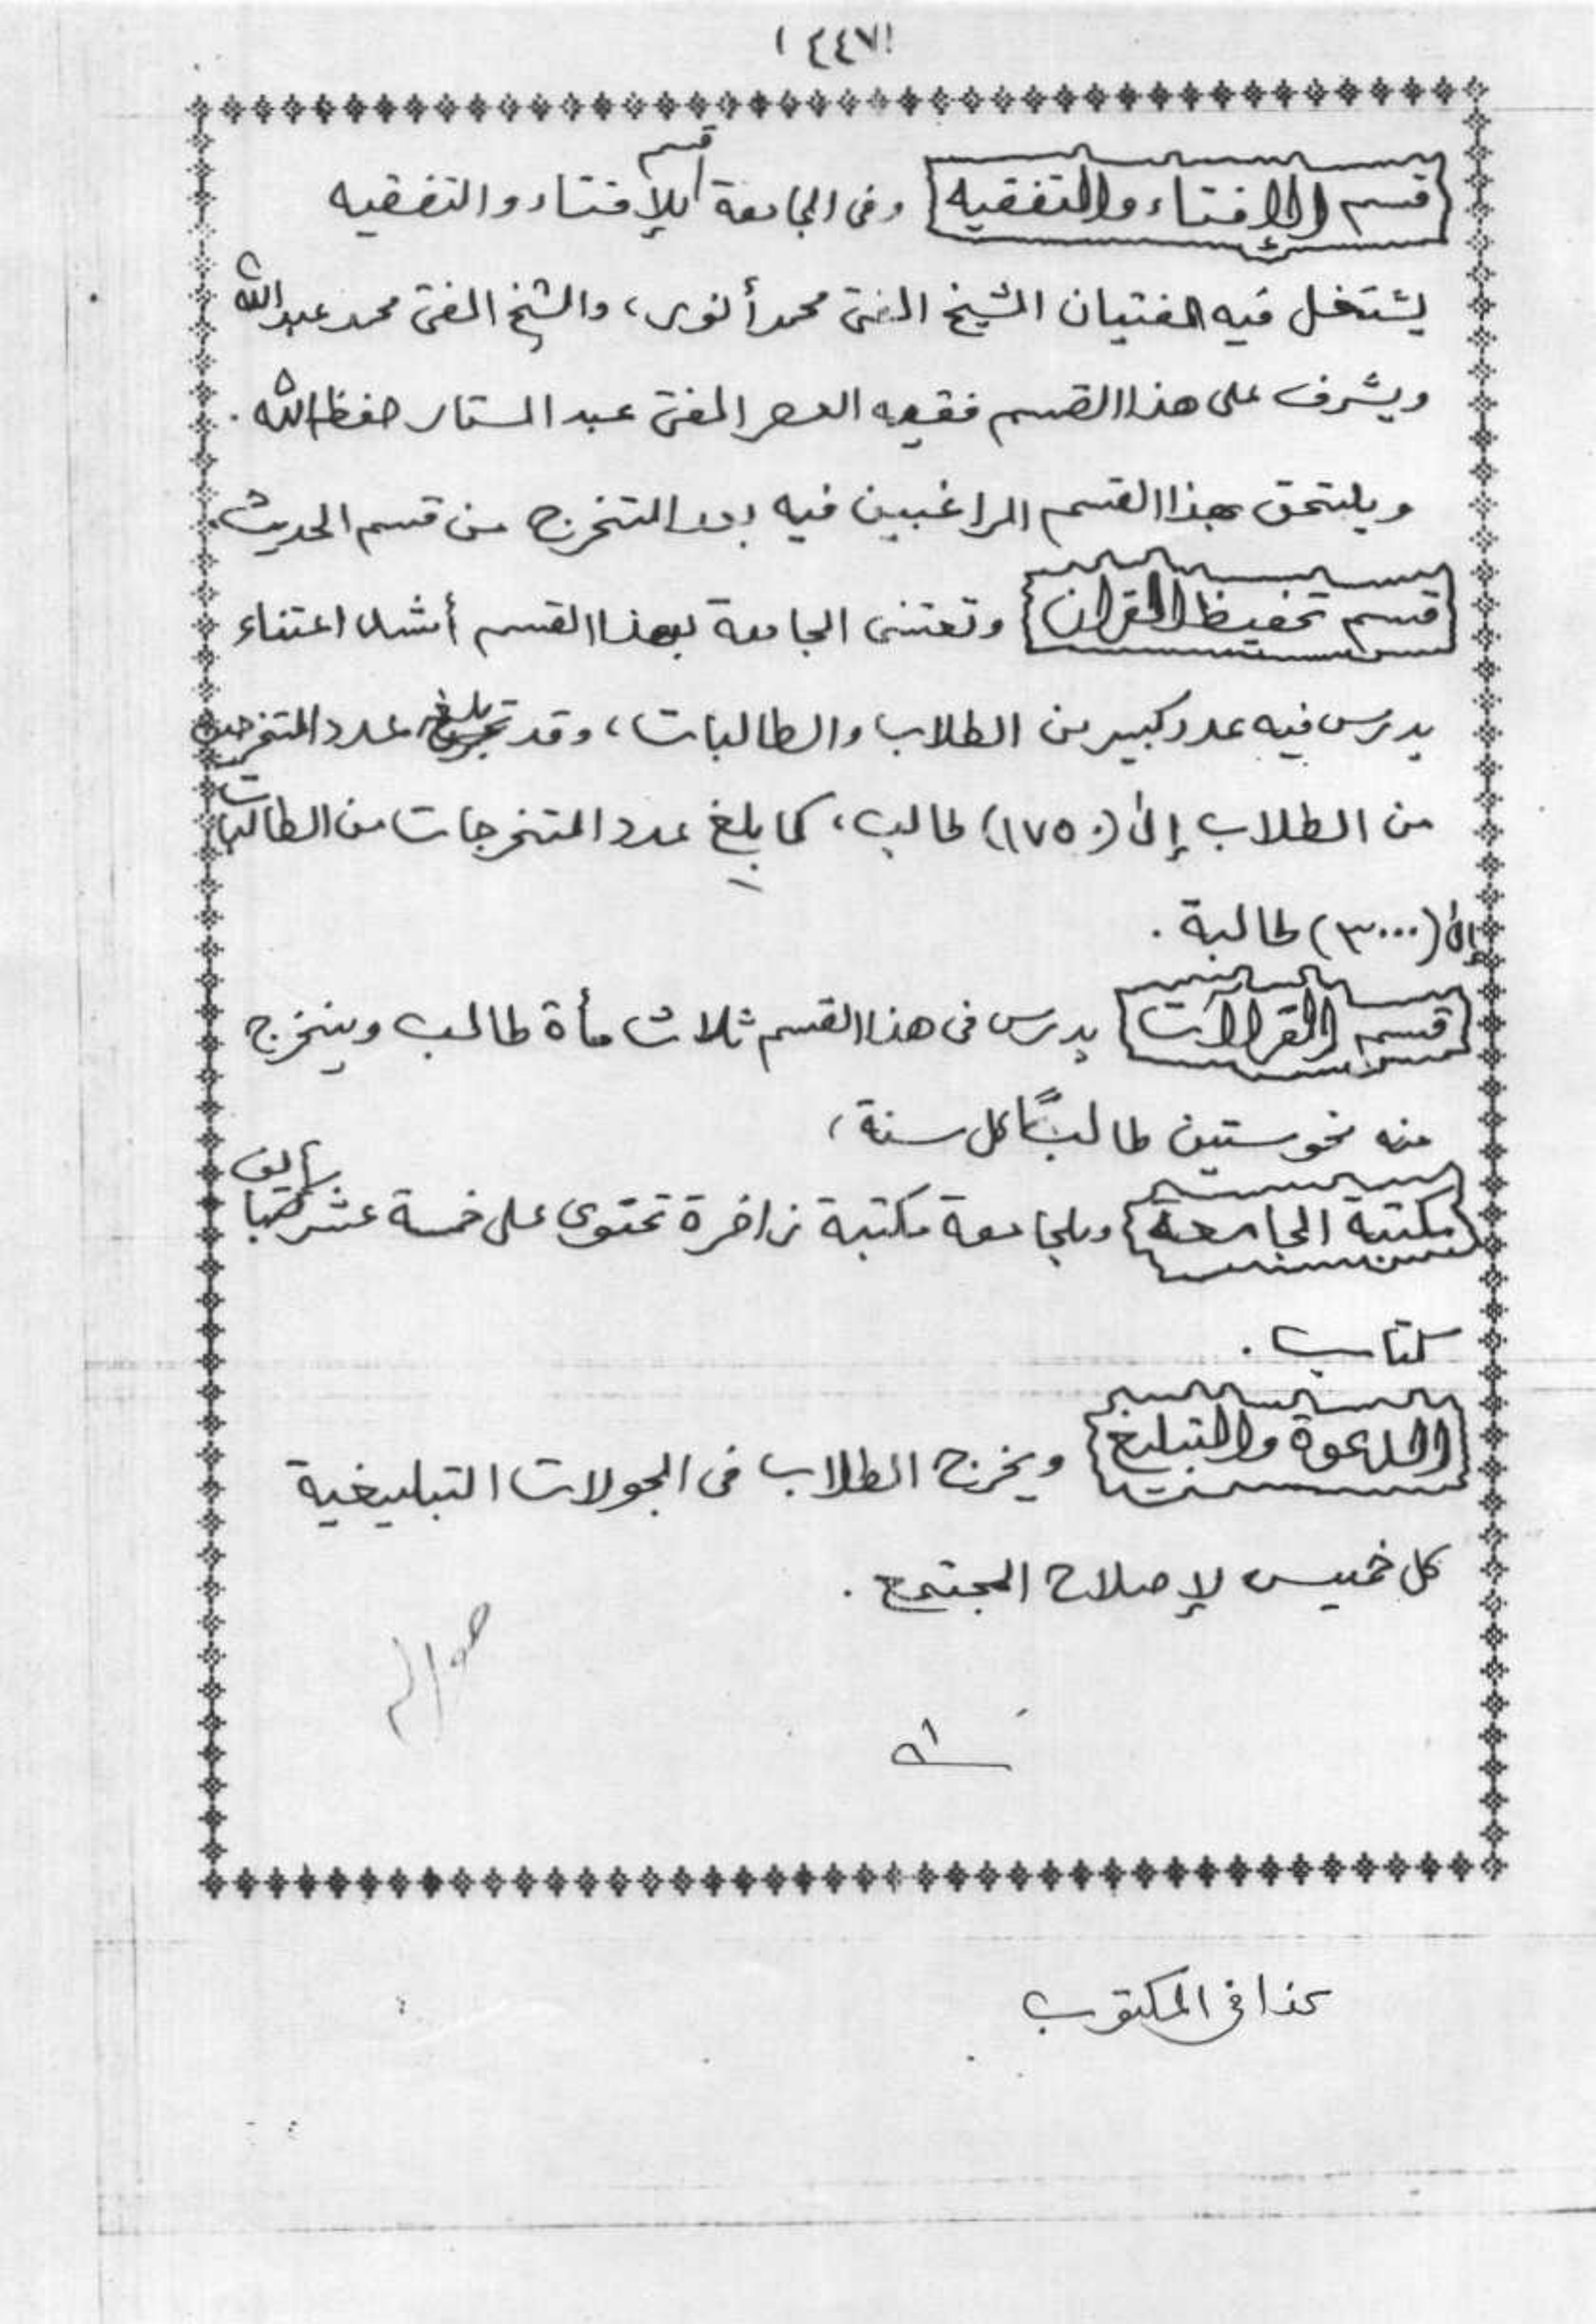 (٤٤٧)
قسم الإفتاء والتفقيه وفى الجامعة قسم للإفتاء والتفقيه
يشتغل فيه المفتيان الشيخ المفتى محمد أنور، والشيخ المفتى محمد عبدالله
ويشرف على هذا القسم فقيه العصر المفتى عبد الستار حفظه الله .
ويلتحق بهذا القسم الراغبين فيه بعد التخرج من قسم الحديث.
قسم تحفيظ القرآن وتعتنى الجامعة بهذا القسم أشد اعتناء
يدرس فيه عدد كبير من الطلاب والطالبات، وقد بلغ عدد المتخرجين
من الطلاب إلى (١٧٥٠) طالب، كما بلغ عدد المتخرجات من الطالبات
إلى (٣٠٠٠) طالبة .
قسم القرآت يدرس فى هذا القسم ثلاث مأة طالب ويتخرج
منه نحو ستين طالبًا كل سنة،
مكتبة الجامعة وللجامعة مكتبة زاخرة تحتوى على خمسة عشر
كتاب .
الدعوة والتبليغ ويخرج الطلاب فى الجولات التبليغية
كل خميس لإصلاح المجتمع .
كذا فى المكتوب